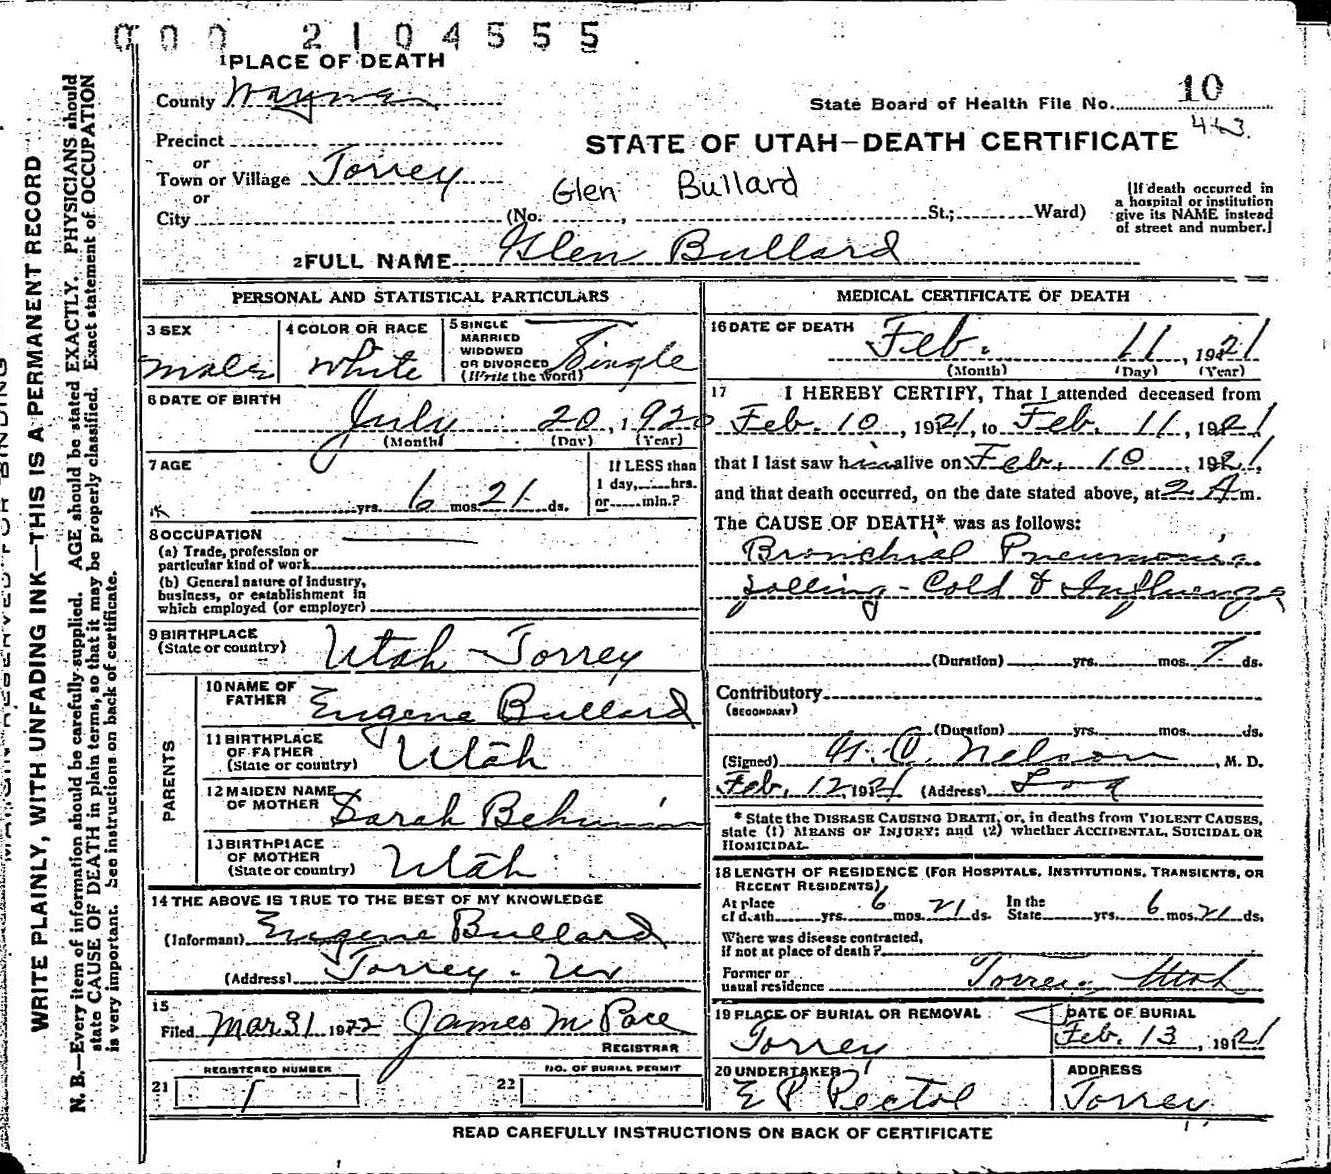 000 2104555
1 PLACE OF DEATH
County Wayne
State Board of Health File No. 10
443
Precinct
STATE OF UTAH—DEATH CERTIFICATE
or
Town or Village Torrey
or
Glen Bullard
City (No. , St.; Ward)
(If death occurred in
a hospital or institution
give its NAME instead
of street and number.)
2 FULL NAME Glen Bullard
PERSONAL AND STATISTICAL PARTICULARS
3 SEX
Male
4 COLOR OR RACE
White
5 SINGLE
MARRIED
WIDOWED
OR DIVORCED
(Write the word)
Single
6 DATE OF BIRTH
July 20, 1920
(Month) (Day) (Year)
7 AGE
yrs. 6 mos. 21 ds.
If LESS than
1 day, hrs.
or min.?
8 OCCUPATION
(a) Trade, profession or
particular kind of work
(b) General nature of industry,
business, or establishment in
which employed (or employer)
9 BIRTHPLACE
(State or country)
Utah - Torrey
PARENTS
10 NAME OF
FATHER
Eugene Bullard
11 BIRTHPLACE
OF FATHER
(State or country)
Utah
12 MAIDEN NAME
OF MOTHER
Sarah Behunin
13 BIRTHPLACE
OF MOTHER
(State or country)
Utah
14 THE ABOVE IS TRUE TO THE BEST OF MY KNOWLEDGE
(Informant) Eugene Bullard
(Address) Torrey -
15
Filed Mar 31 1922 James M Pace
REGISTRAR
REGISTERED NUMBER
21 1
NO. OF BURIAL PERMIT
22
MEDICAL CERTIFICATE OF DEATH
16 DATE OF DEATH
Feb. 11, 1921
(Month) (Day) (Year)
17 I HEREBY CERTIFY, That I attended deceased from
Feb. 10, 1921, to Feb. 11, 1921
that I last saw him alive on Feb. 10, 1921,
and that death occurred, on the date stated above, at 2 A m.
The CAUSE OF DEATH* was as follows:
Bronchial Pneumonia
following - Cold & Influenza
(Duration) yrs. mos. 7 ds.
Contributory
(SECONDARY)
(Duration) yrs. mos. ds.
(Signed) Nelson, M. D.
Feb. 12 1921 (Address) Loa
* State the DISEASE CAUSING DEATH, or, in deaths from VIOLENT CAUSES,
state (1) MEANS OF INJURY; and (2) whether ACCIDENTAL, SUICIDAL OR
HOMICIDAL.
18 LENGTH OF RESIDENCE (FOR HOSPITALS, INSTITUTIONS, TRANSIENTS, OR
RECENT RESIDENTS)
At place
of death yrs. 6 mos. 21 ds.
In the
State yrs. 6 mos. 21 ds.
Where was disease contracted,
if not at place of death?
Former or
usual residence Torrey, Utah
19 PLACE OF BURIAL OR REMOVAL
Torrey
DATE OF BURIAL
Feb. 13, 1921
20 UNDERTAKER
E P Pectol
ADDRESS
Torrey
READ CAREFULLY INSTRUCTIONS ON BACK OF CERTIFICATE
WRITE PLAINLY, WITH UNFADING INK—THIS IS A PERMANENT RECORD
N. B.—Every item of information should be carefully supplied. AGE should be stated EXACTLY. PHYSICIANS should
state CAUSE OF DEATH in plain terms, so that it may be properly classified. Exact statement of OCCUPATION
is very important. See instructions on back of certificate.